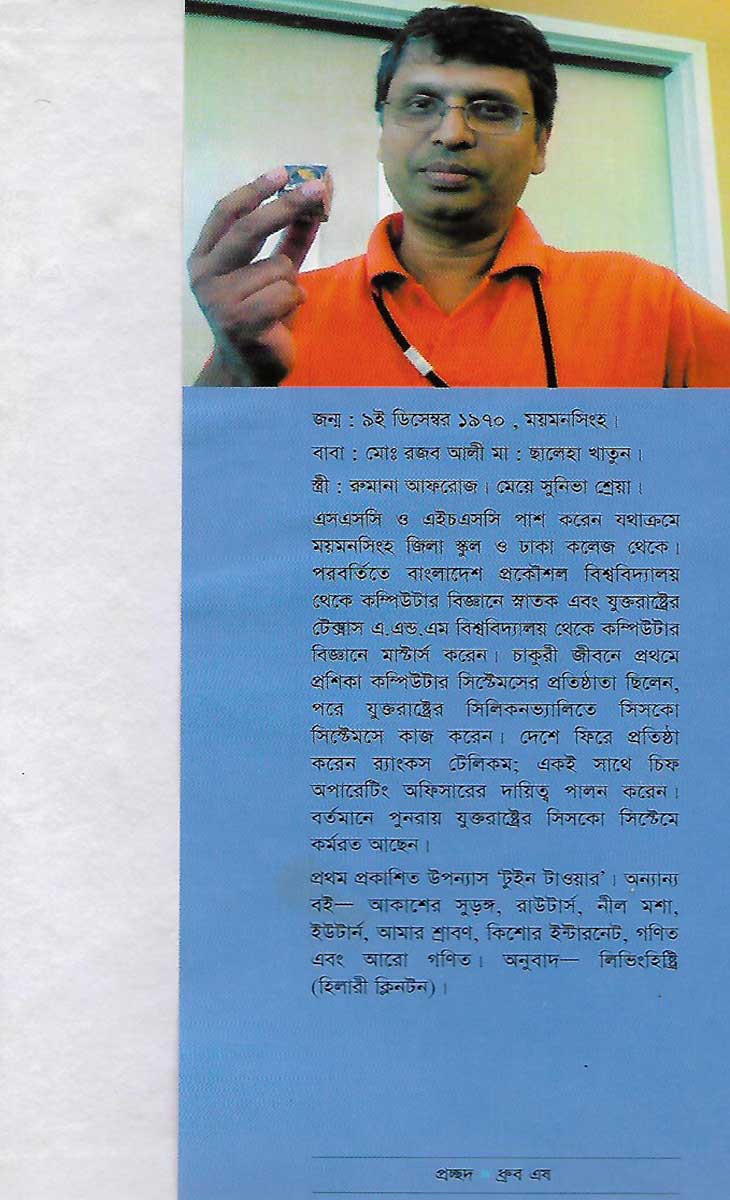 জন্ম : ৯ই ডিসেম্বর ১৯৭০ , ময়মনসিংহ।
বাবা : মোঃ রজব আলী মা : ছালেহা খাতুন।
স্ত্রী : রুমানা আফরোজ। মেয়ে সুনিভা শ্রেয়া।
এসএসসি ও এইচএসসি পাশ করেন যথাক্রমে
ময়মনসিংহ জিলা স্কুল ও ঢাকা কলেজ থেকে।
পরবর্তিতে বাংলাদেশ প্রকৌশল বিশ্ববিদ্যালয়
থেকে কম্পিউটার বিজ্ঞানে স্নাতক এবং যুক্তরাষ্ট্রের
টেক্সাস এ.এন্ড.এম বিশ্ববিদ্যালয় থেকে কম্পিউটার
বিজ্ঞানে মাস্টার্স করেন। চাকুরী জীবনে প্রথমে
প্রশিকা কম্পিউটার সিস্টেমসের প্রতিষ্ঠাতা ছিলেন,
পরে যুক্তরাষ্ট্রের সিলিকনভ্যালিতে সিসকো
সিস্টেমসে কাজ করেন। দেশে ফিরে প্রতিষ্ঠা
করেন র‍্যাংকস টেলিকম; একই সাথে চিফ
অপারেটিং অফিসারের দায়িত্ব পালন করেন।
বর্তমানে পুনরায় যুক্তরাষ্ট্রের সিসকো সিস্টেমে
কর্মরত আছেন।
প্রথম প্রকাশিত উপন্যাস ‘টুইন টাওয়ার’। অন্যান্য
বই— আকাশের সুড়ঙ্গ, রাউটার্স, নীল মশা,
ইউটার্ন, আমার শ্রাবণ, কিশোর ইন্টারনেট, গণিত
এবং আরো গণিত। অনুবাদ— লিভিংহিষ্ট্রি
(হিলারী ক্লিনটন)।
প্রচ্ছদ ধ্রুব এষ